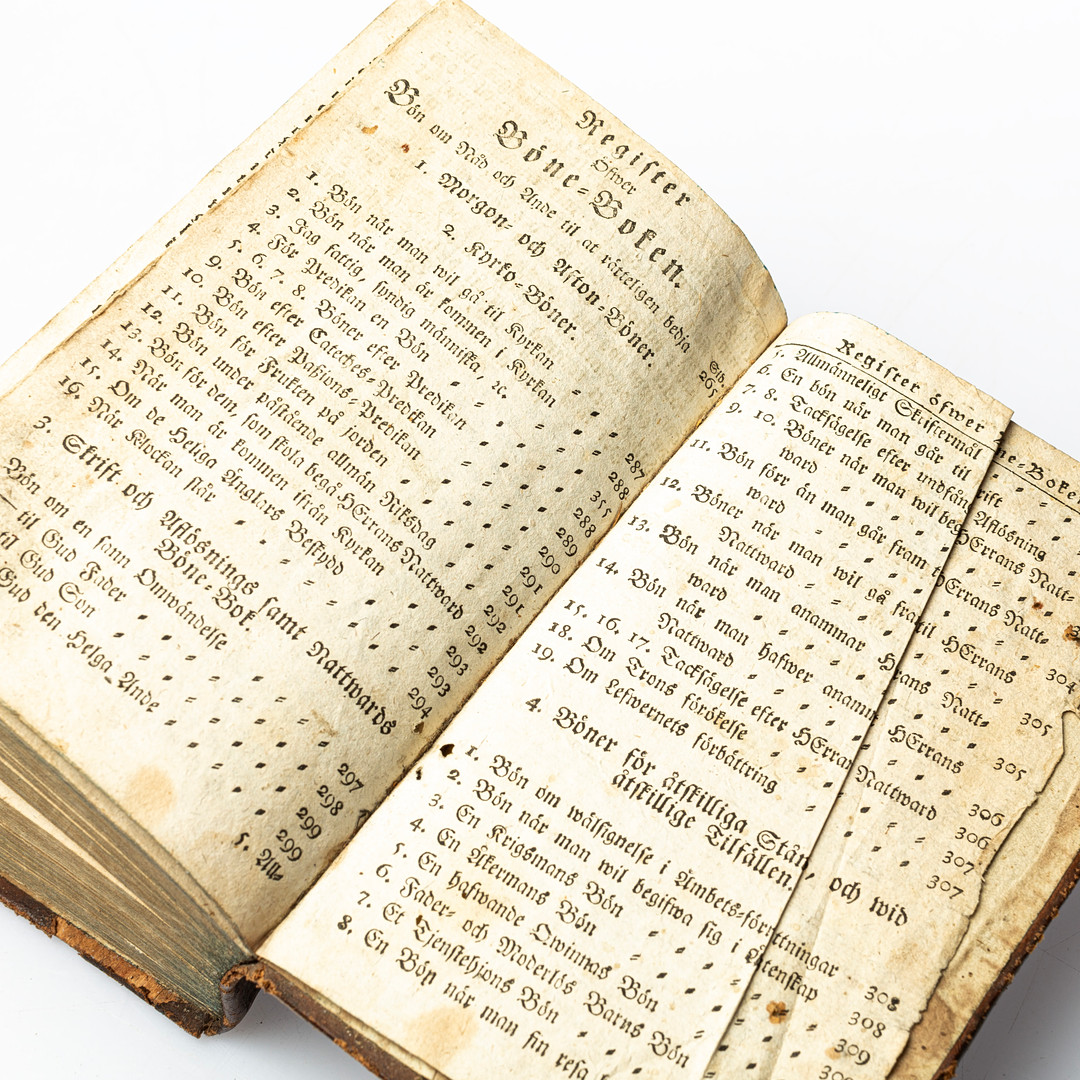 Register
Öfwer
Böne-Boken.
Bön om Nåd och Anda til at rätteligen bedja
Sid. 265
1. Morgon- och Afton-Böner.
2. Kyrko-Böner.
1. Bön når man wil gå til Kyrkan 287
2. Bön når man år kommen i Kyrkan 288
3. Jag fattig syndig människa, ꝛc. 355
4. För Predikan en Bön 288
5. 6. 7. 8. Böner efter Predikan 289
9. Bön efter Cateches-Predikan 290
10. Bön efter Paßions-Predikan 291
11. Bön för Frukten på jorden 291
12. Bön under påstående allmån Riksdag 292
13. Bön för dem, som skola begå HErrans Nattward 292
14. Når man år kommen ifrån Kyrkan 293
15. Om de Heliga Änglars Beskydd 293
16. Når Klockan slår 294
3. Skrift och Aflösnings samt Nattwards
Böne-Bok.
Bön om en sann Omwåndelse 297
til Gud Fader 298
til Gud Son 299
Gud den Helga Ande 299
5. All-
Register öfwer
ne-Boke
5. Allmånneligt Skriftermål
6. En bön når man går til rift
7. 8. Tacksågelse efter undfån Aflösning
9. 10. Böner når man wil beg HErrans Natt-
ward
11. Bön förr ån man går fram t HErrans Natt-
ward
12. Böner når man wil gå fra til HErrans
Nattward 304
13. Bön når man anammar H rans Natt-
ward 305
14. Bön når man hafwer anamm HErrans
Nattward 305
15. 16. 17. Tacksågelse efter HErran Nattward 306
18. Om Trons förökelse 306
19. Om Lefwernets förbåttring 307
307
4. Böner för åtskilliga Stån, och wid
åtskillige Tilfällen
1. Bön om wålsignelse i Åmbets-förrättningar 308
2. Bön når man wil begifwa sig i Åktenskap 308
3. En Krigsmans Bön 309
4. En Åkermans Bön
5. En hafwande Qwinnas Bön
6. Fader- och Moderlös Barns Bön
7. Et Tjenstehjons Bön
8. En Bön når man sin resa